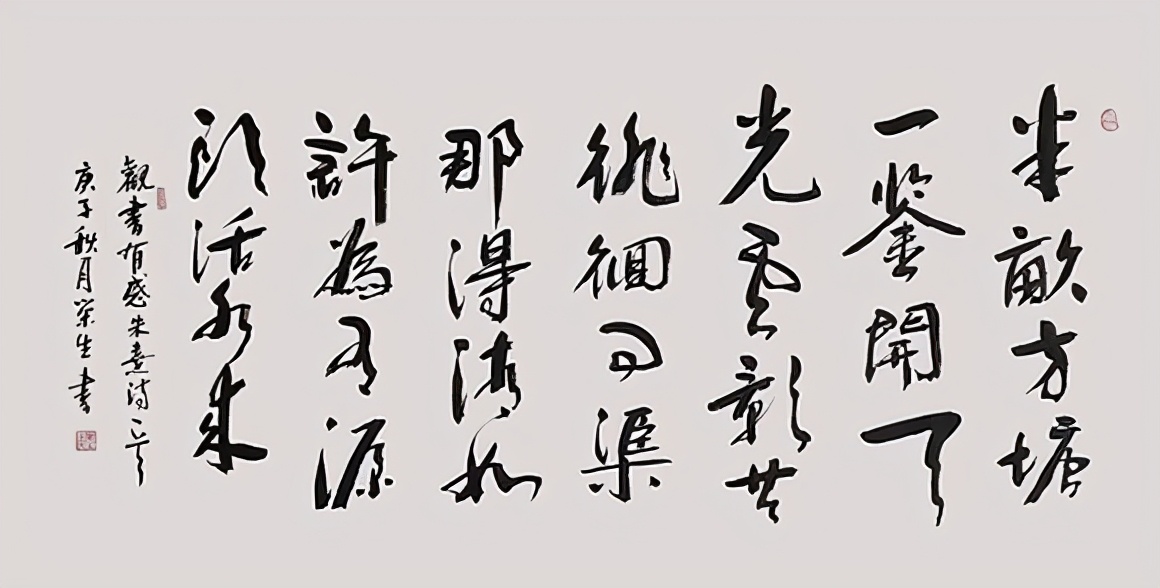 半畝方塘
一鉴開天
光雲影共
徘徊問渠
那得清如
許為有源
頭活水来
觀書有感朱熹詩一首
庚子秋月榮生書